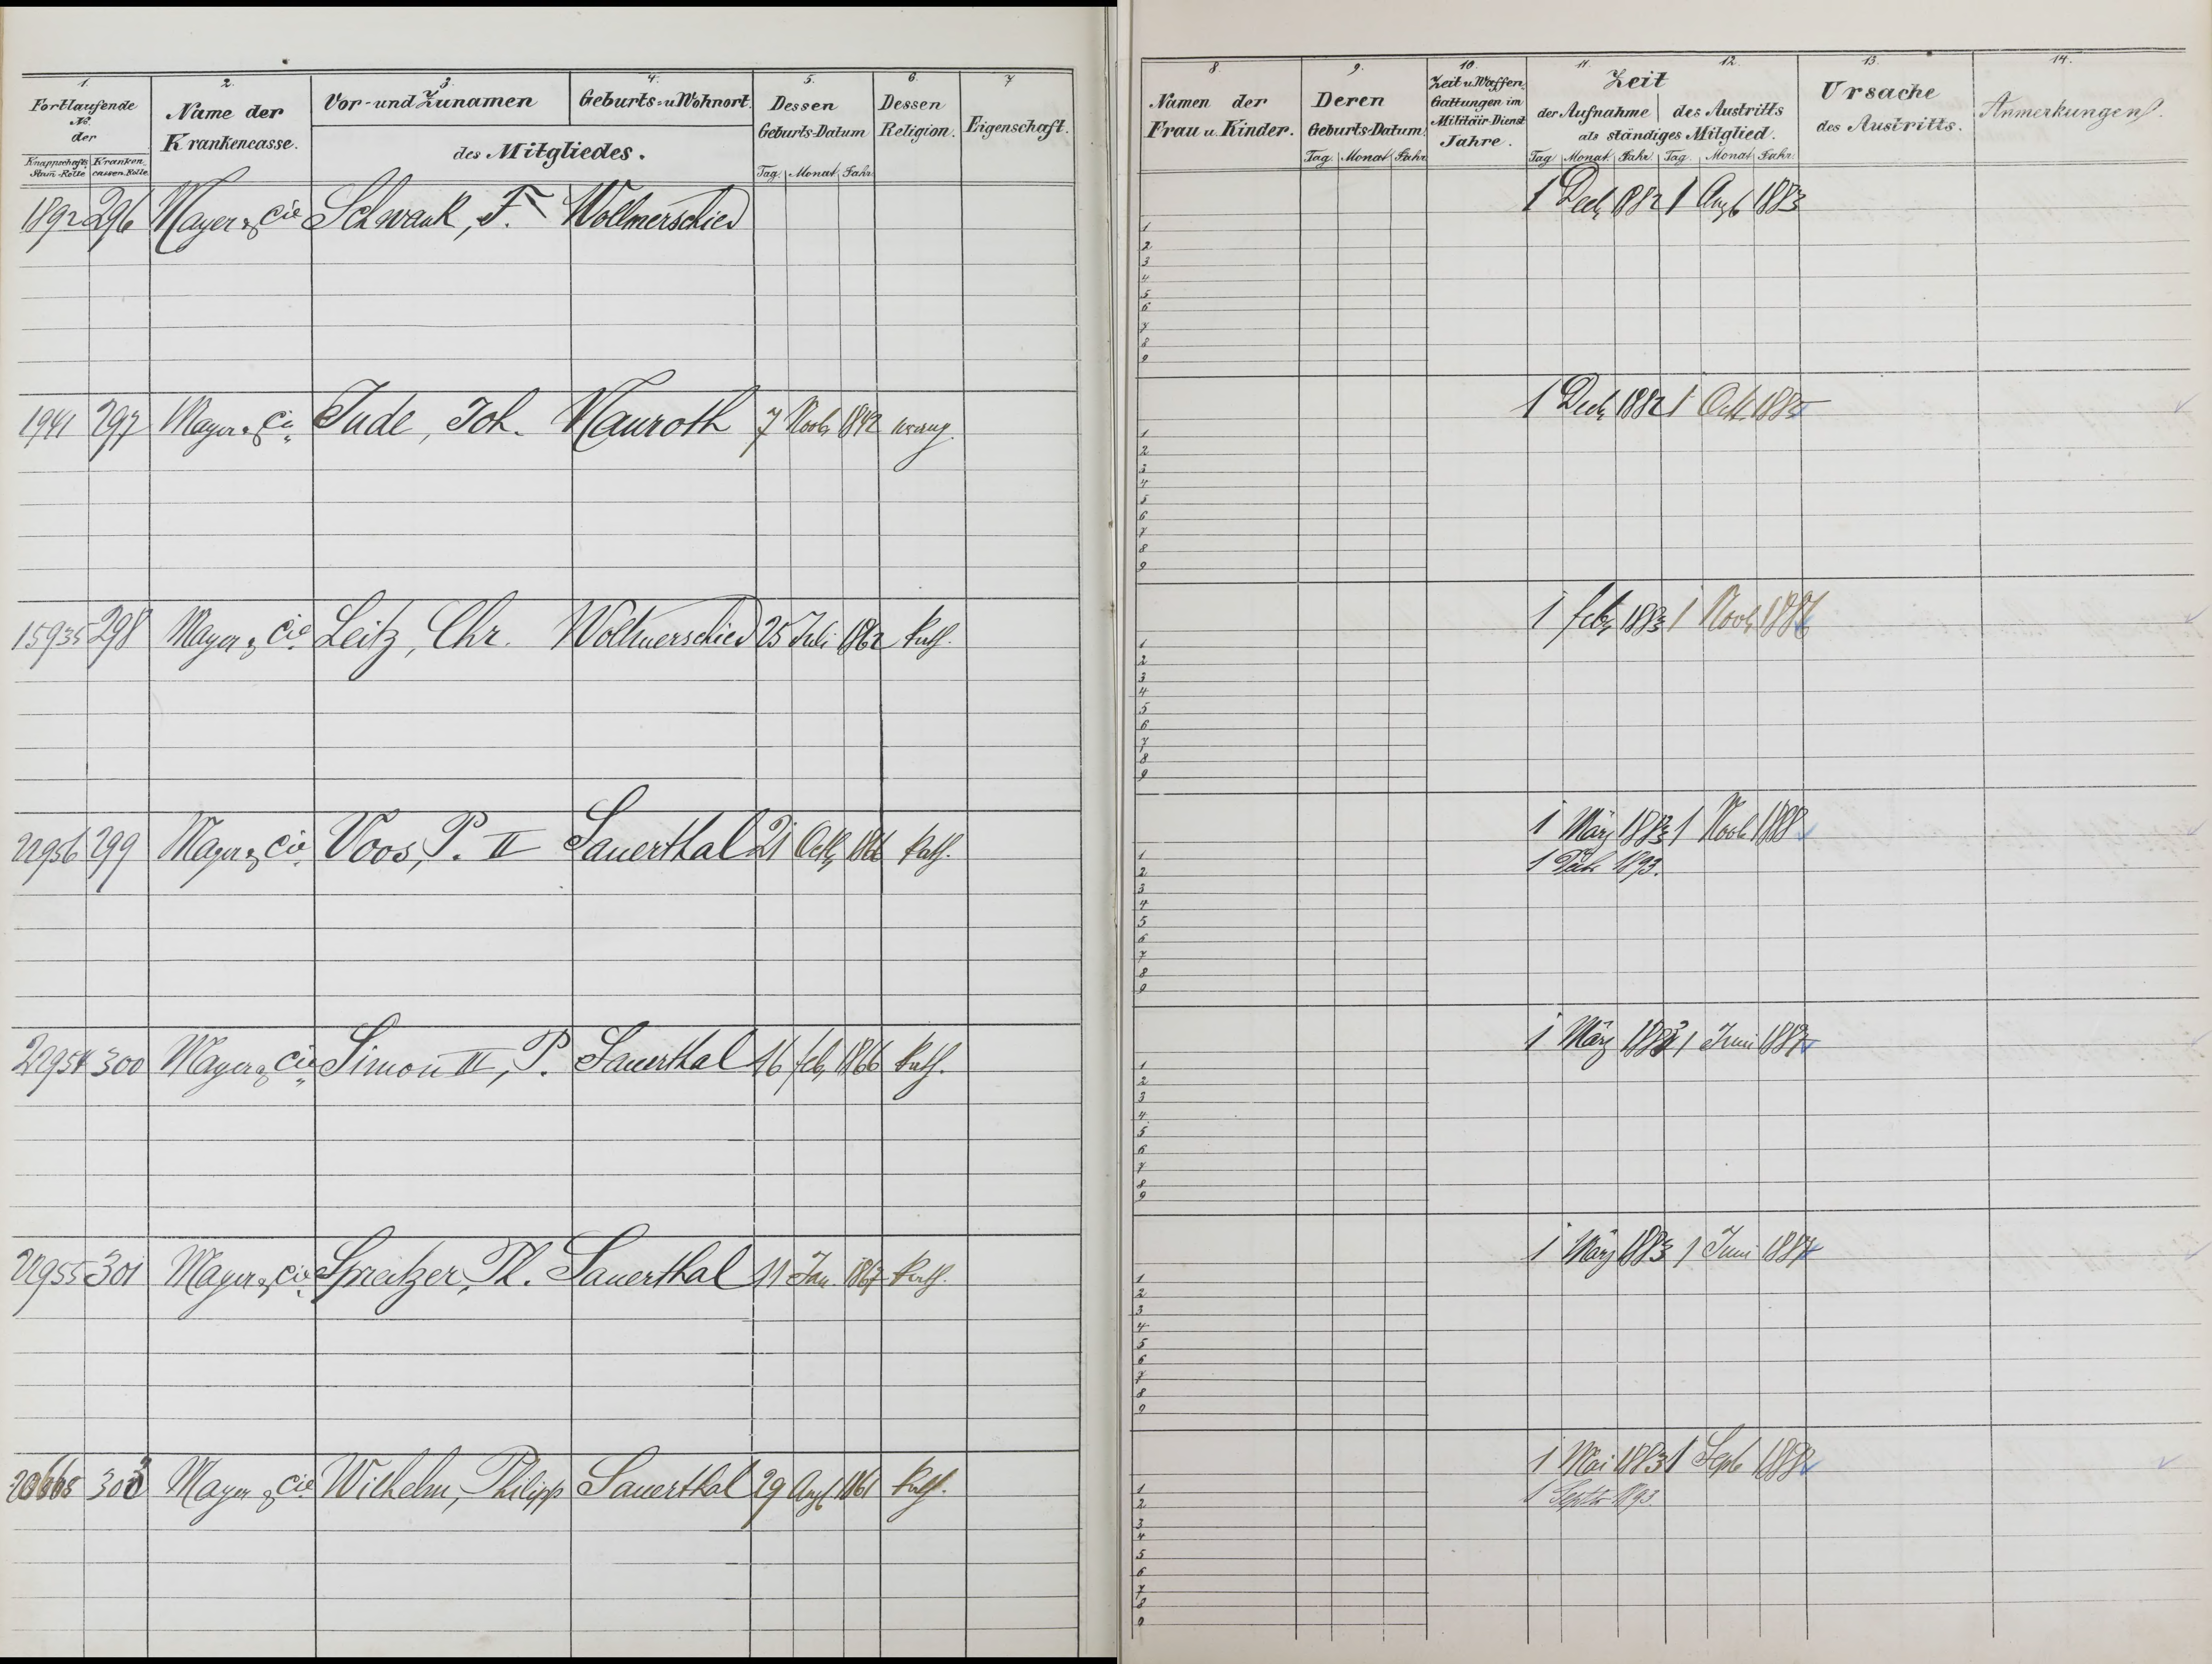 1. 2. 3. 4. 5. 6. 7
Fortlaufende No. der
Knappschafts Stam-Rolle Kranken cassen-Rolle
Name der Krankencasse.
Vor- und Zunamen Geburts- u Wohnort.
des Mitgliedes.
Dessen Geburts-Datum
Tag. Monat. Jahr.
Dessen Religion.
Eigenschaft.
1892 296 Mayer & Cie Schwank, F. Wollmerschied
1941 297 Mayer & Cie Jude, Joh. Mauroth 7 Novb. 1842 evang.
15935 298 Mayer & Cie. Leitz, Chr. Wollmerschied 25 Juli 1862 kath.
22956 299 Mayer & Cie. Voos, P. II Sauerthal 21 Octb. 1866 kath.
22954 300 Mayer & Cie. Simon III, P. Sauerthal 16 Feb. 1866 kath.
22955 301 Mayer & Cie. Spreitzer, Ph. Sauerthal 11 Jan. 1867 kath.
303 Mayer & Cie. Wilhelm, Philipp Sauerthal 29 Aug. 1861 kath.
8. 9. 10. 11. 12. 13. 14.
Namen der Frau u. Kinder.
Deren Geburts-Datum.
Tag. Monat. Jahr
Zeit u. Waffen-Gattungen im Militär-Dienst Jahre.
Zeit
der Aufnahme des Austritts
als ständiges Mitglied.
Tag. Monat. Jahr. Tag. Monat. Jahr.
Ursache des Austritts.
Anmerkungen.
1 Decb. 1882 1 Aug. 1883
1
2
3
4
5
6
7
8
9
1 Decb. 1882 1 Octb. 1885
1
2
3
4
5
6
7
8
9
1 Feb. 1883 1 Novb. 1886
1
2
3
4
5
6
7
8
9
1 März 1883 1 Novb. 1888
1 1893.
1
2
3
4
5
6
7
8
9
1 März 1883 1 Juni 1887
1
2
3
4
5
6
7
8
9
1 März 1883 1 Juni 1887
1
2
3
4
5
6
7
8
9
1 Mai 1883 1 Septb. 1888
1 Septb. 1893
1
2
3
4
5
6
7
8
9